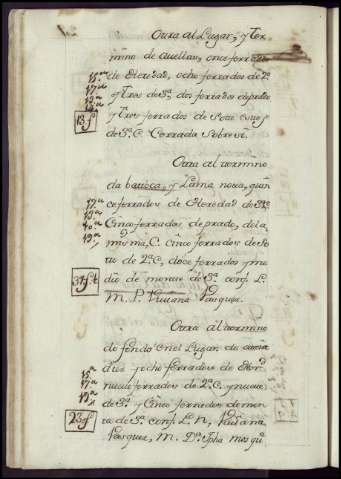 Otra al Lugar, y Ter
mino de Avellan, once ferrados
de Eredad, ocho ferrados de 1ª
y tres de 2ª dos ferrados de prado
y tres ferrados de Soto con
de 3ª C. Cerrada sobre sí.
13 f
Otra al termino
da barroca, y Lama nova, quin
ce ferrados de Heredad de
Cinco ferrados de prado, de la
misma C. cinco ferrados de So
to de 2ª C, doce ferrados y me
dio de monte de 3ª conf. L.
M. P. Viviana Vasquez.
37 f
Otra al termino
do fondo enel Lugar da
diez y ocho ferrados de Her
nueve ferrados de 2ª C. y nueve
de 3ª y Cinco ferrados de mon
te de 3ª conf. L. N, Viviana
Vasquez, M. Dª Jpha
23 f